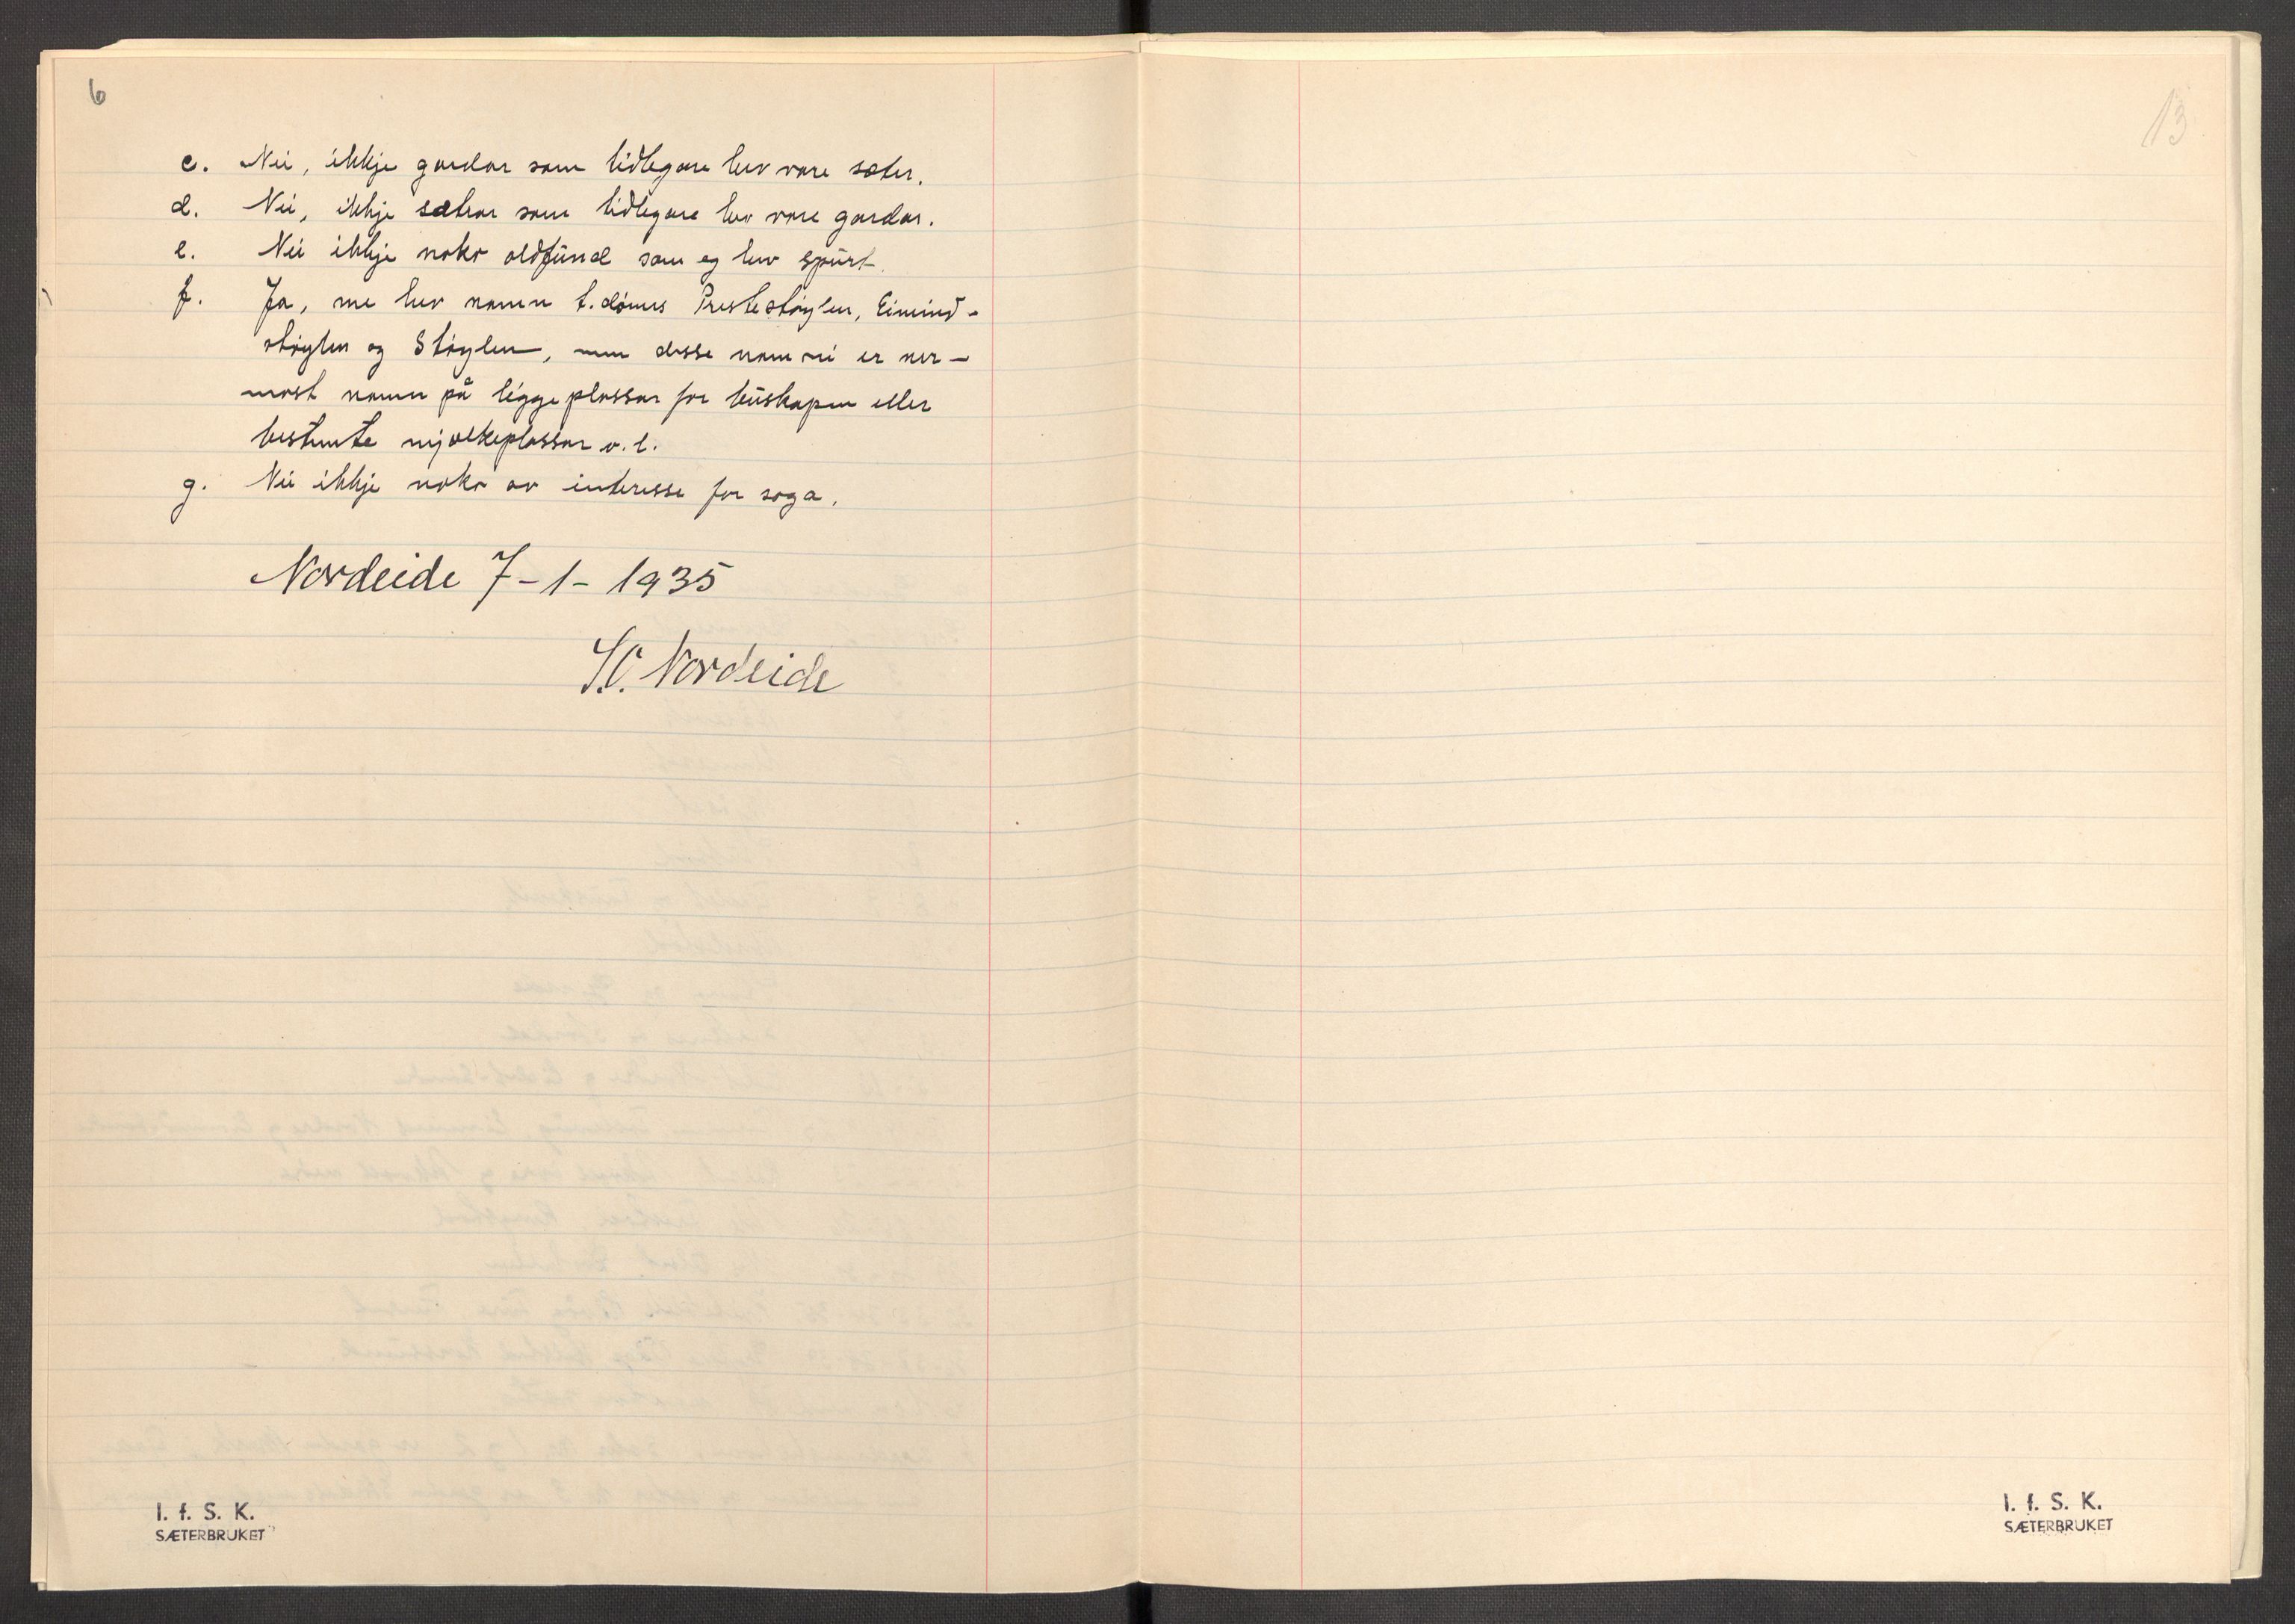 6
c. Nei, ikkje gardar som tidlegare hev vore sæter.
d. Nei, ikkje sætrar som tidlegare hev vore gardar.
e. Nei ikkje noko oldfund som eg hev spurt.
f. Ja, me hev namn t. dømes Prestestøylen, Eimind-
støylen og Støylen, men disse namni er nær-
mast namn på liggeplassar for buskapen eller
bestemte mjølkeplassar o. l.
g. Nei ikkje noko av interesse for soga.
Nordeide 7-1-1935
S.O. Nordeide
I. f. S. K.
SÆTERBRUKET
13
I. f. S. K.
SÆTERBRUKET